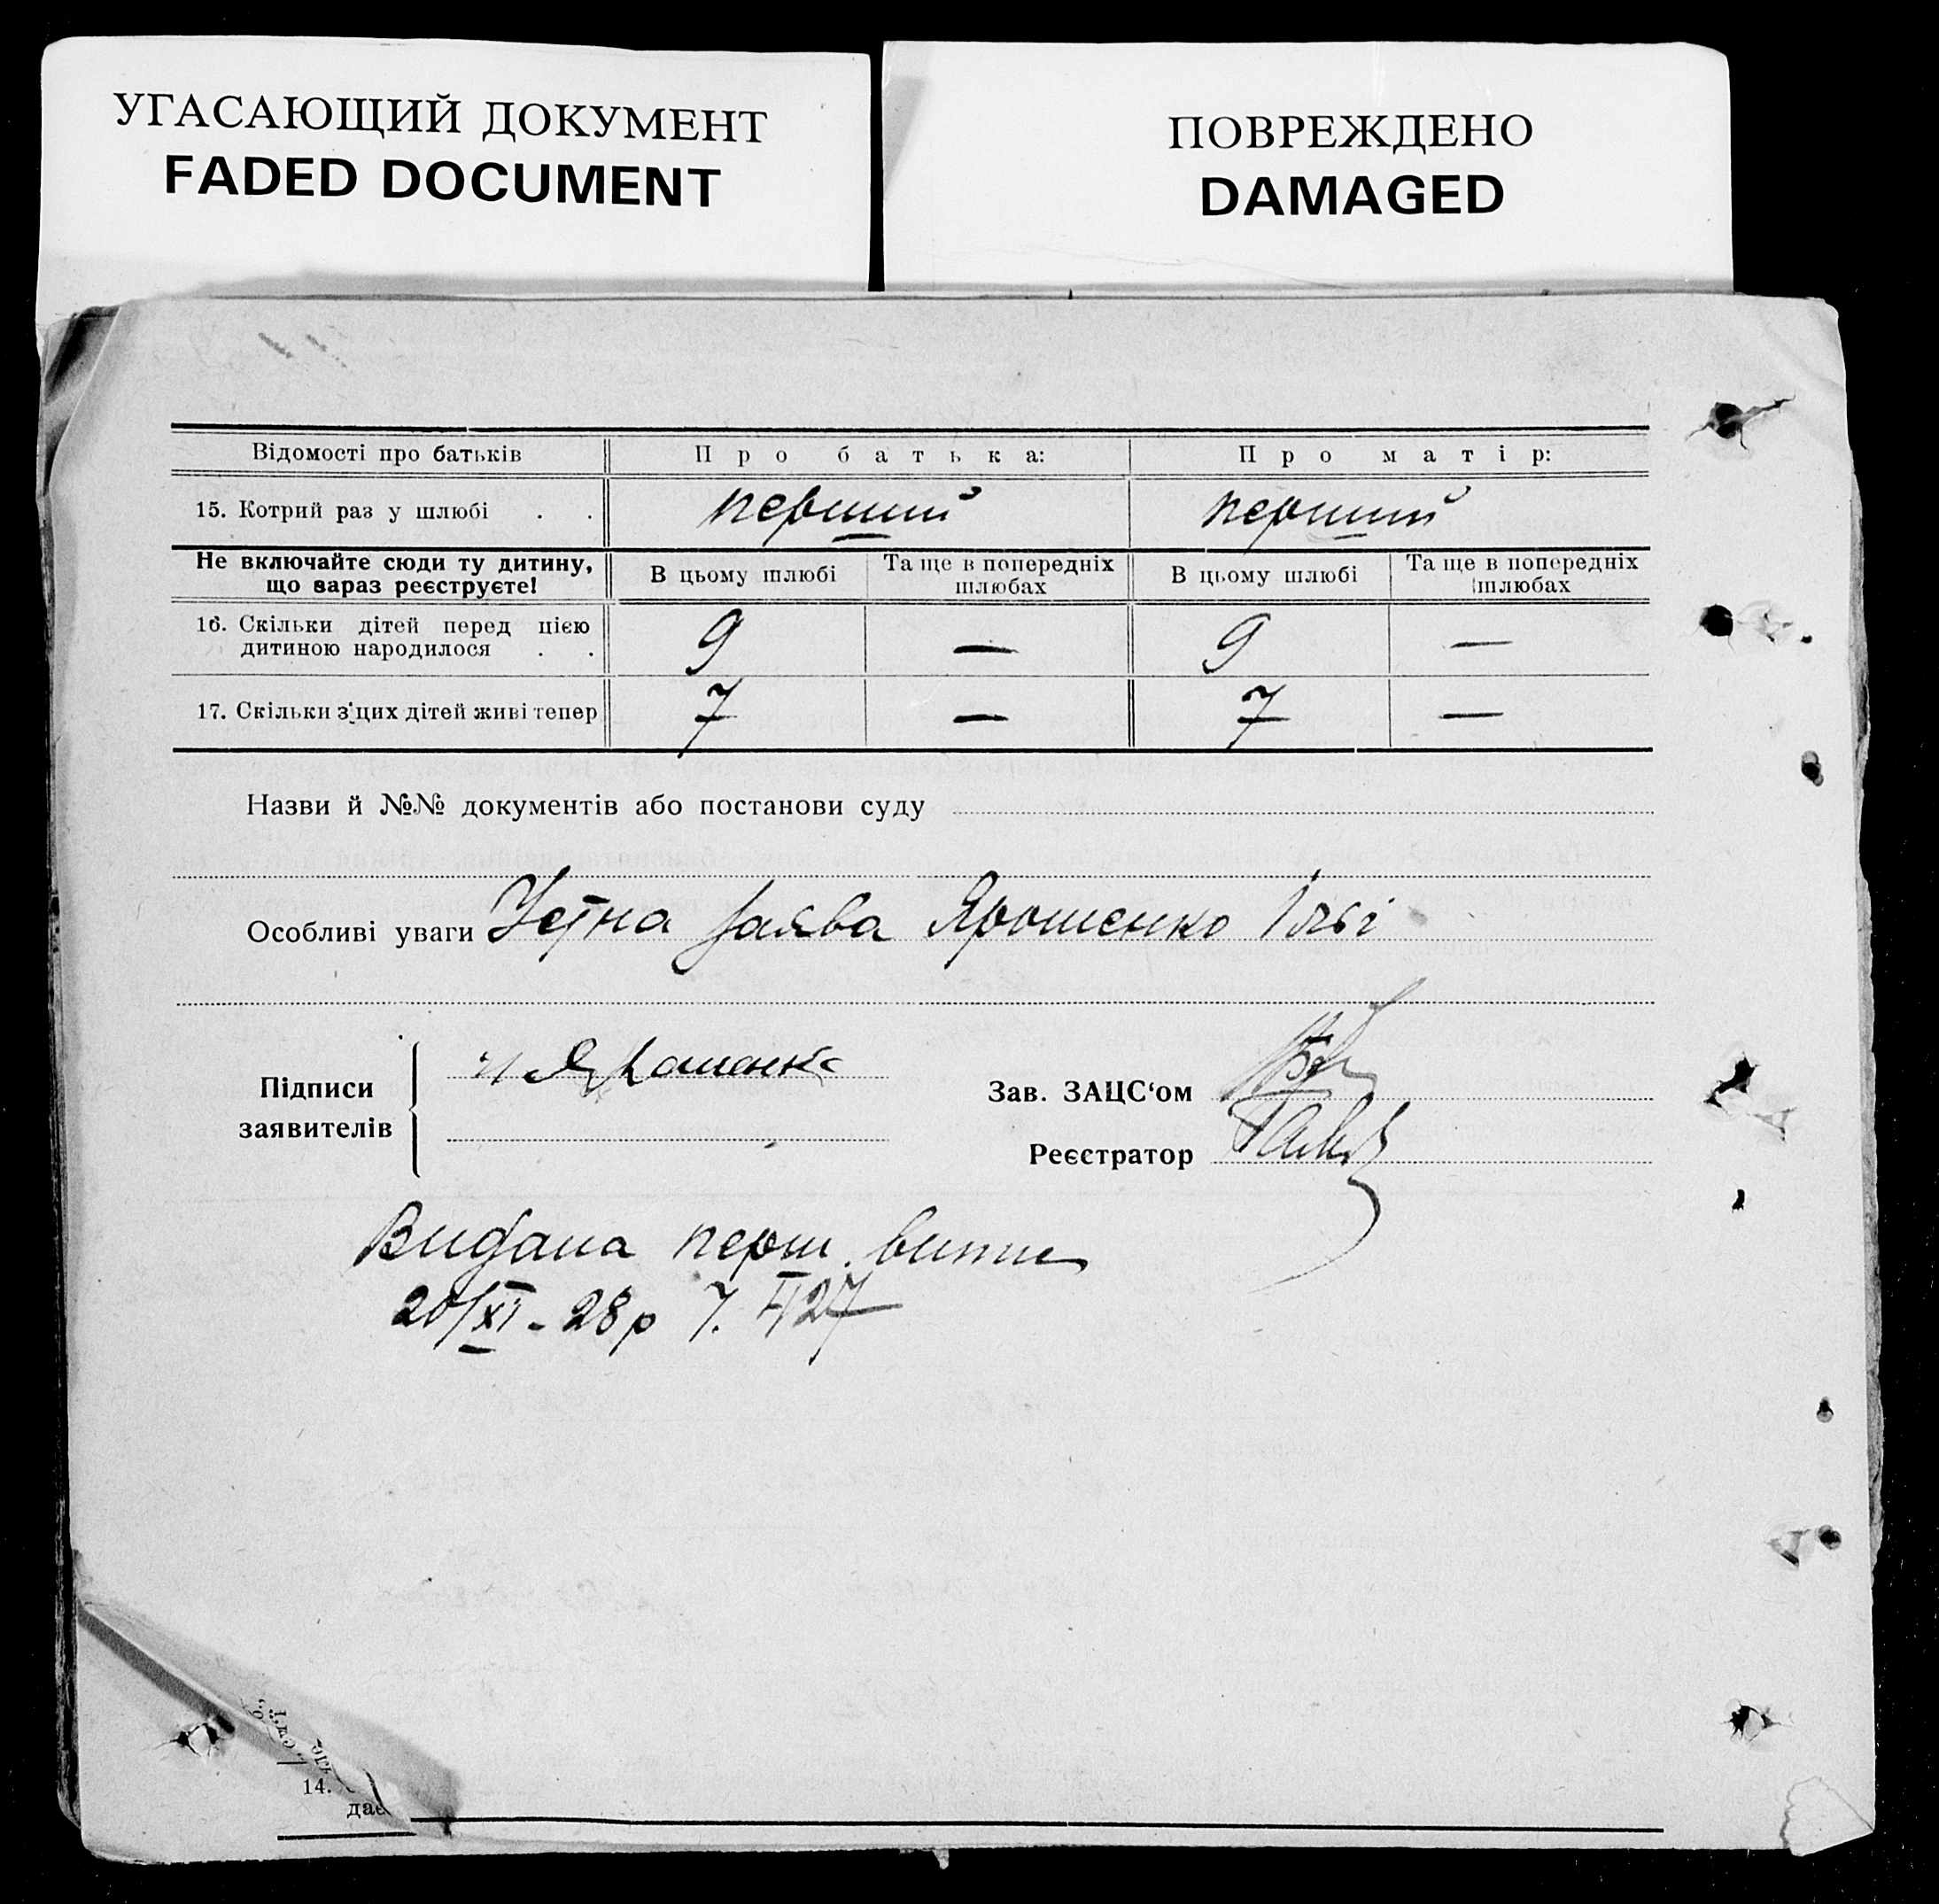 УГАСАЮЩИЙ ДОКУМЕНТ
FADED DOCUMENT
ПОВРЕЖДЕНО
DAMAGED
Відомості про батьків Про батька: Про матір:
15. Котрий раз у шлюбі . . перший перший
Не включайте сюди ту дитину, що зараз реєструєте! В цьому шлюбі Та ще в попередніх шлюбах В цьому шлюбі Та ще в попередніх шлюбах
16. Скільки дітей перед цією
дитиною народилося . . 9 — 9 —
17. Скільки з'цих дітей живі тепер 7 — 7 —
Назви й №№ документів або постанови суду
Особливі уваги Устна заява Ярошенко Ільі
Підписи
заявителів
Зав. ЗАЦС‘ом
Реєстратор
Видана перш. випис
20/XI - 28 р
14.
дає